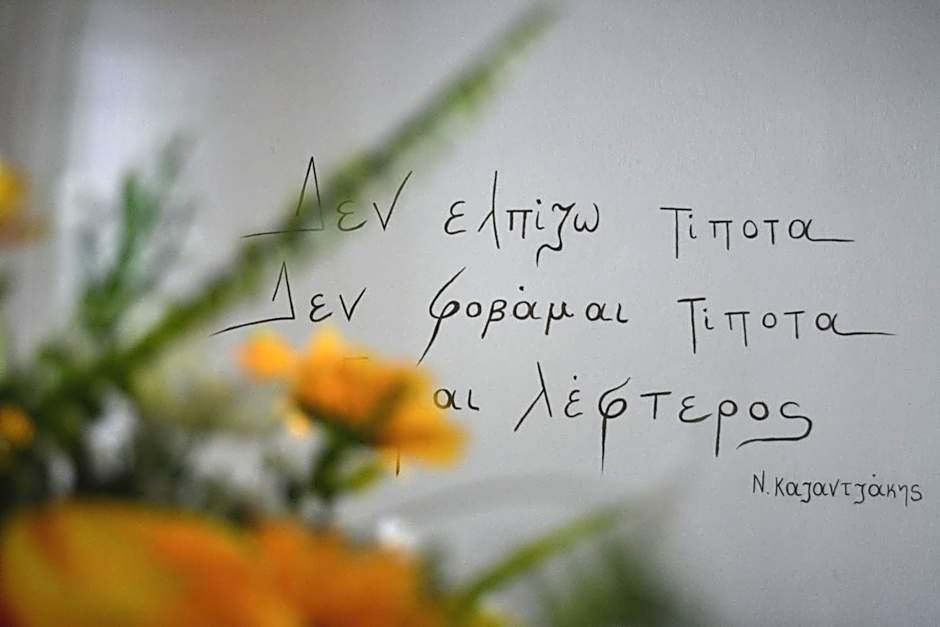 Δεν ελπίζω τίποτα
Δεν φοβάμαι τίποτα
λέφτερος
Ν. Καζαντζάκης